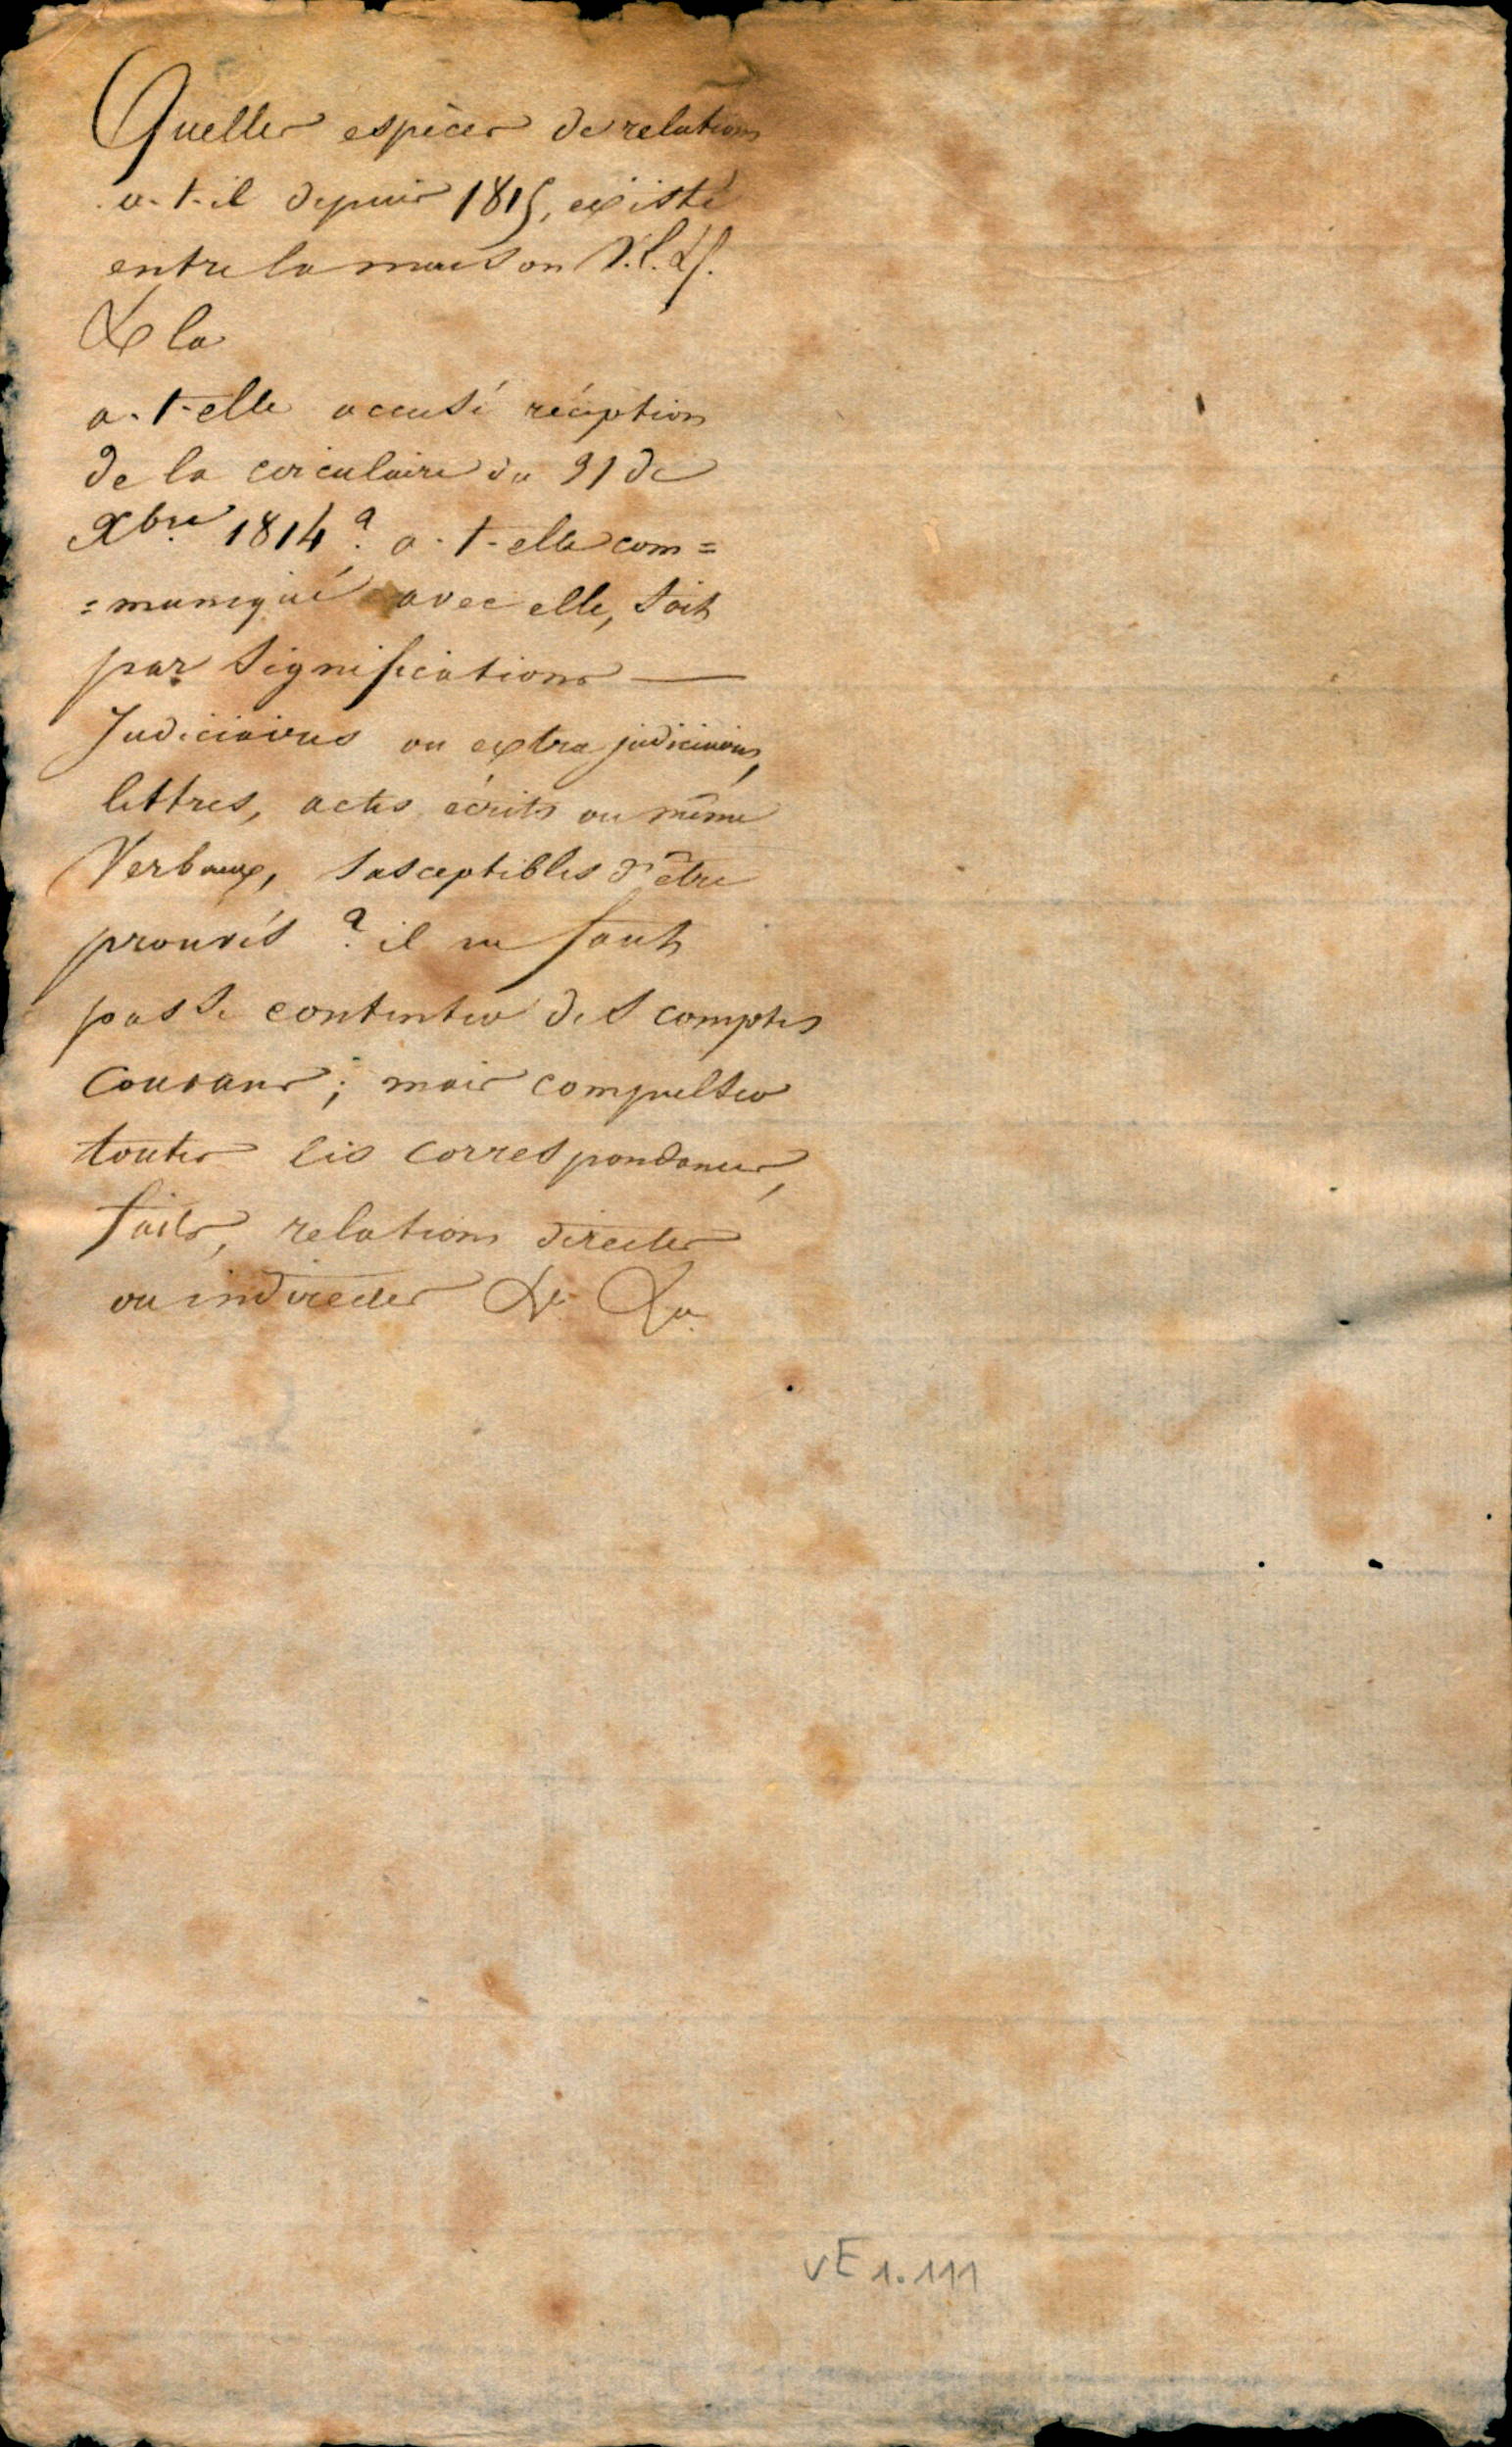 Quelles espèces de relations
a-t-il depuis 1815, existé
entre la maison
& la
a-t-elle accusé réception
de la circulaire du 31 de
Xbre 1814? a-t-elle com=
=muniqué avec elle, soit
par significations —
Judiciaires ou extra judiciaires,
lettres, actes écrits ou même
Verbaux, susceptibles d'être
prouvés? il ne faut
pas se contenter des comptes
courans; mais compulser
toutes les correspondances,
faits, relations directes
ou indirectes &c. &c.
VE 1.111